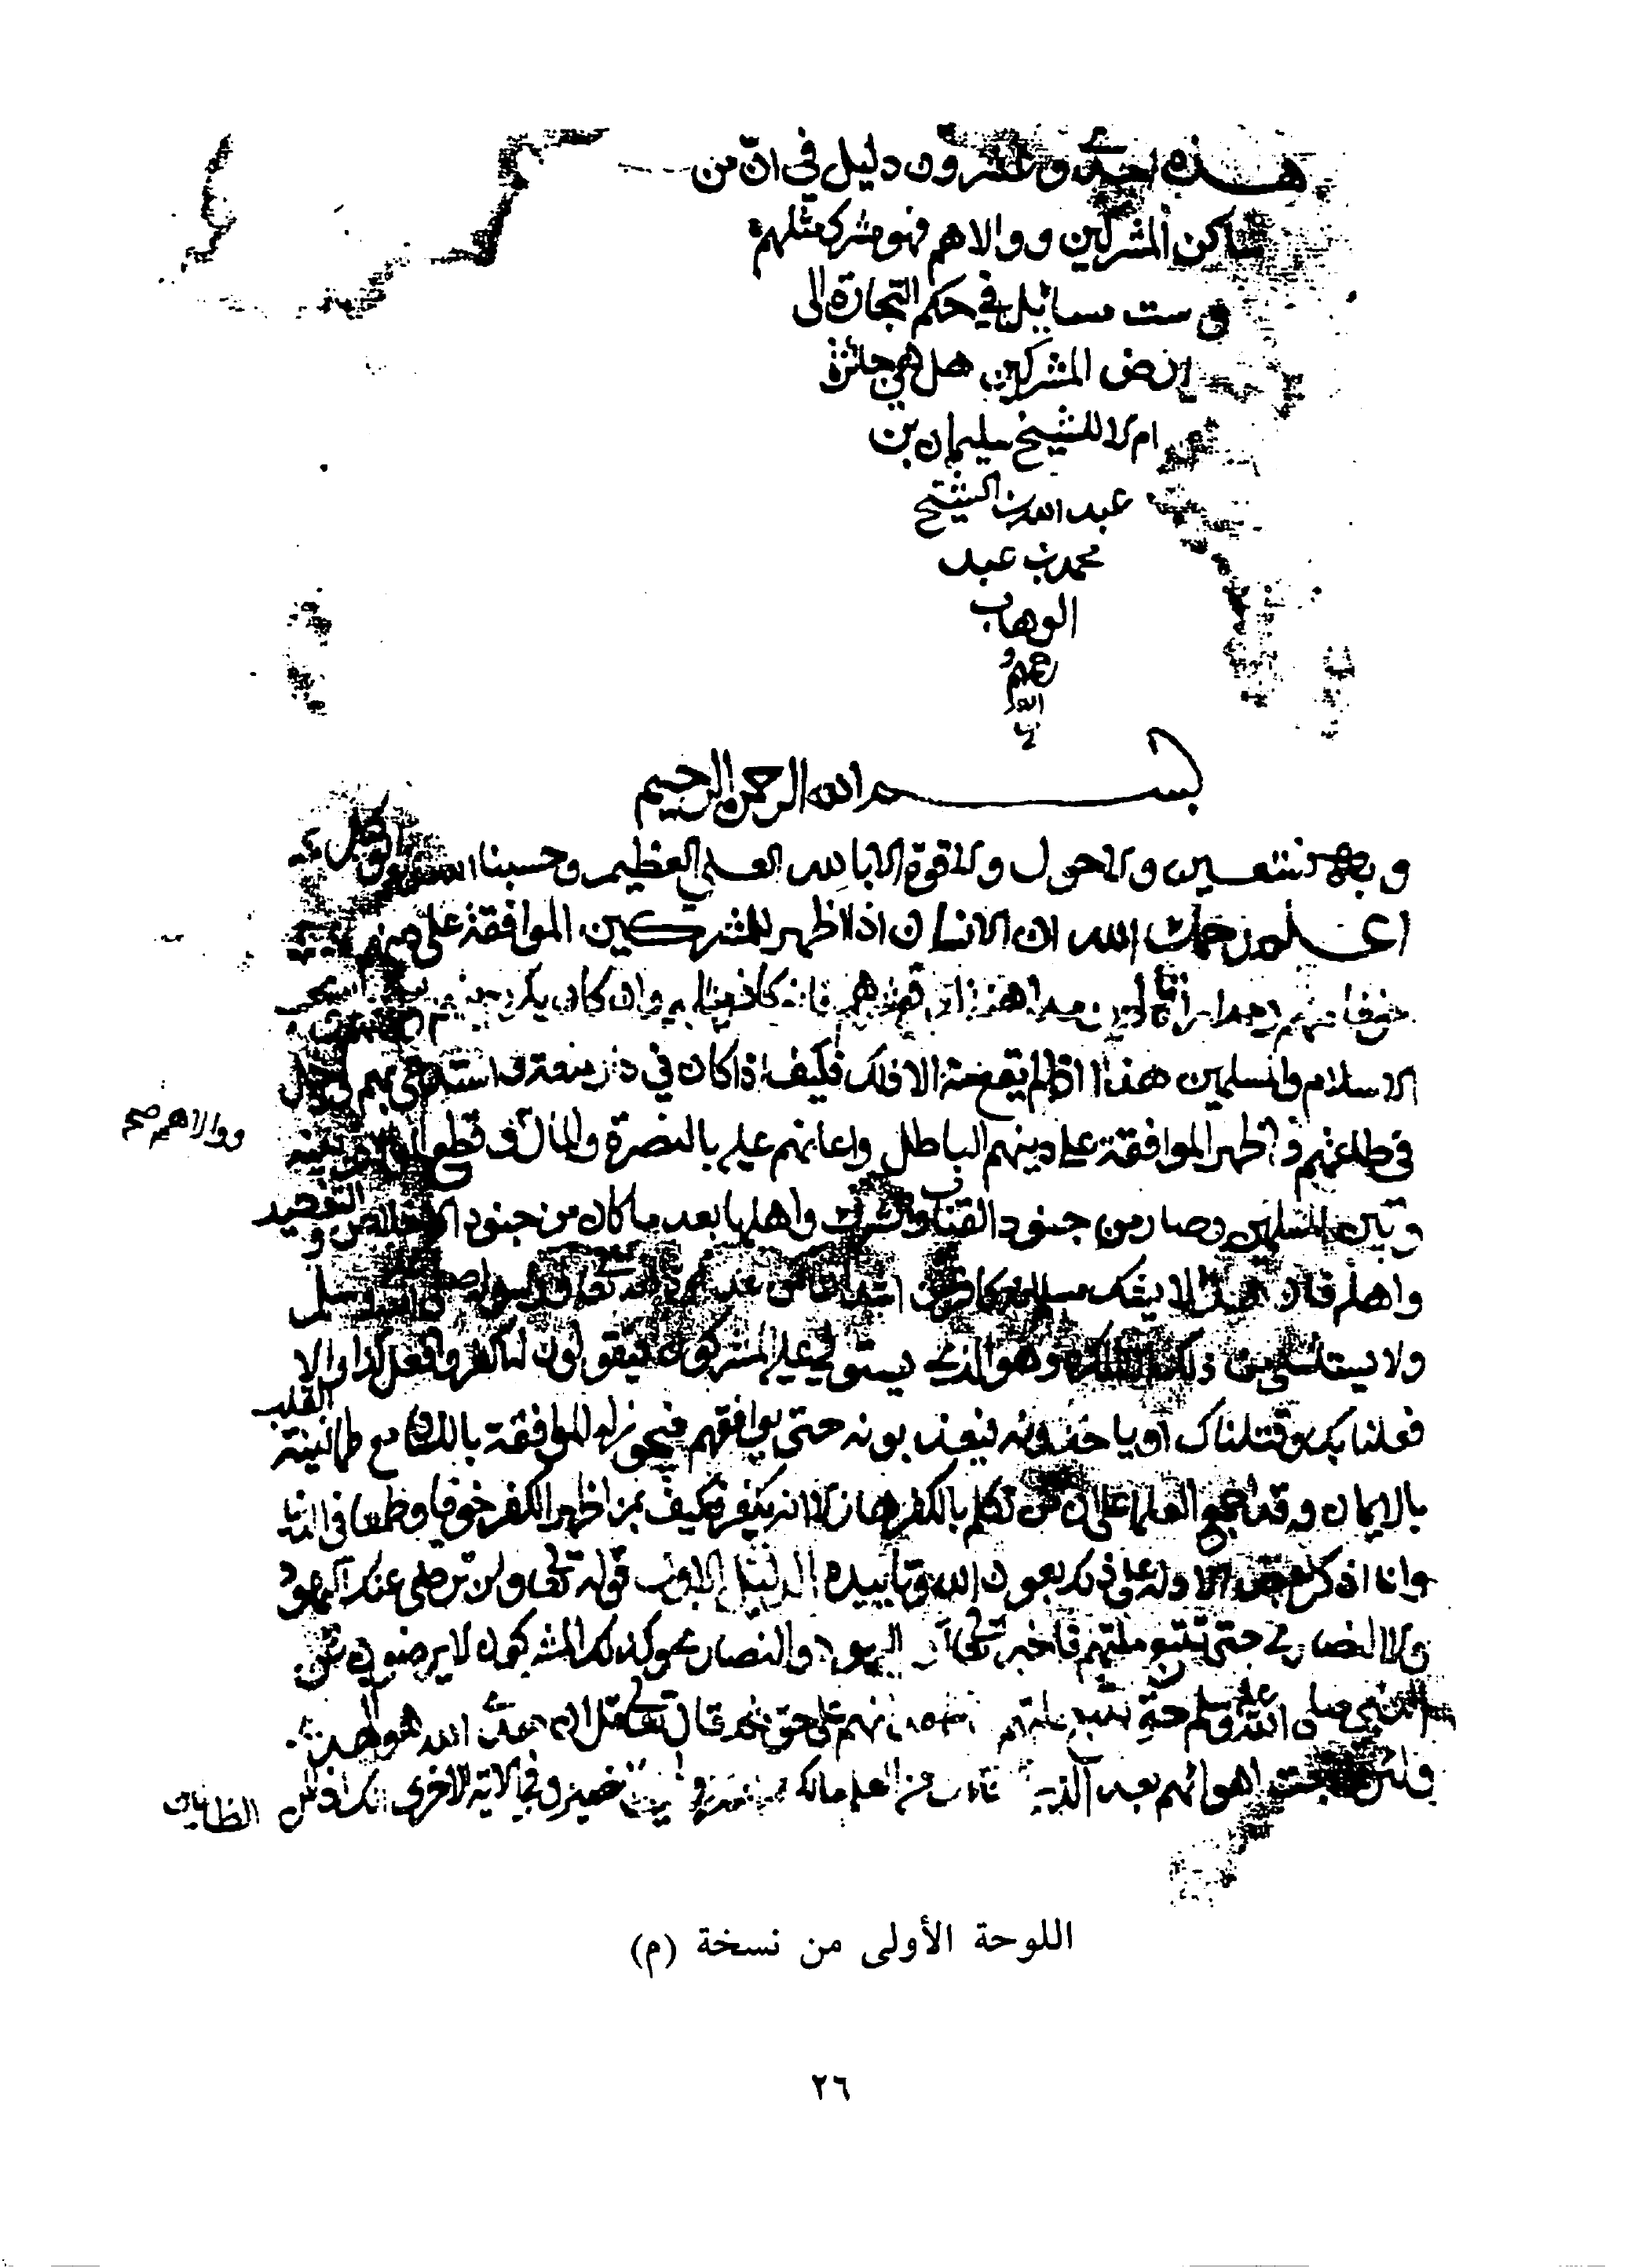 هذه احدى وعشرون دليل في انّ من
ساكن المشركين ووالاهم فهو مشرك مثلهم
وست مسائل في حكم التجارة الى
ارض المشركين هل هي جائزة
ام لا للشيخ سليمان بن
عبد الله بن الشيخ
محمد بن عبد
الوهاب
الله
بسم الله الرحمن الرحيم
وبه نستعين ولا حول ولا قوة الا بالله العلي العظيم وحسبنا الله ونعم الوكيل
اعلم رحمك الله ان الانسان اذا اظهر للمشركين الموافقة على دينهم
خوفا منهم فانه كافر مثلهم وان كان يكره دينهم
الاسلام والمسلمين هذا اذا لم يقع منه الا ذلك فكيف اذا كان في دار منعة واستدعى بهم ودخل
في طاعتهم واظهر الموافقة على دينهم الباطل واعانهم عليه بالنصرة والمال وقطع الموالاة بينه
ووالاهم صح
وبين المسلمين وصار من جنود القباب والشرك واهلها بعد ما كان من جنود الاخلاص والتوحيد
واهله فان هذا لا يشك مسلم انه كافر من اشد الناس عداوة لله تعالى ورسوله صلى الله عليه وسلم
ولا يستثنى من ذلك الا المكره وهو الذي يستولي عليه المشركون فيقولون له اكفر وافعل كذا والا
فعلنا بك وقتلناك او ياخذونه فيعذبونه حتى يوافقهم فيجوز له الموافقة باللسان مع طمانينة القلب
بالايمان وقد اجمع العلما على ان من تكلم بالكفر هازلا انه يكفر فكيف بمن اظهر الكفر خوفا وطمعا في الدنيا
وانا اذكر بعض الادلة على ذلك بعون الله وتاييده الدليل الاول قوله تعالى ولن ترضى عنك اليهود
ولا النصارى حتى تتبع ملتهم فاخبر تعالى ان اليهود والنصارى وكذلك المشركون لا يرضون عن
النبي صلى الله عليه وسلم حتى يتبع ملتهم انهم على حق ثم قال تعالى قل ان هدى الله هو الهدى
ولئن اتبعت اهوائهم بعد الذي جاءك من العلم مالك وفي الاية الاخرى انك اذا لمن الظالمين
اللوحة الأولى من نسخة (م)
٢٦